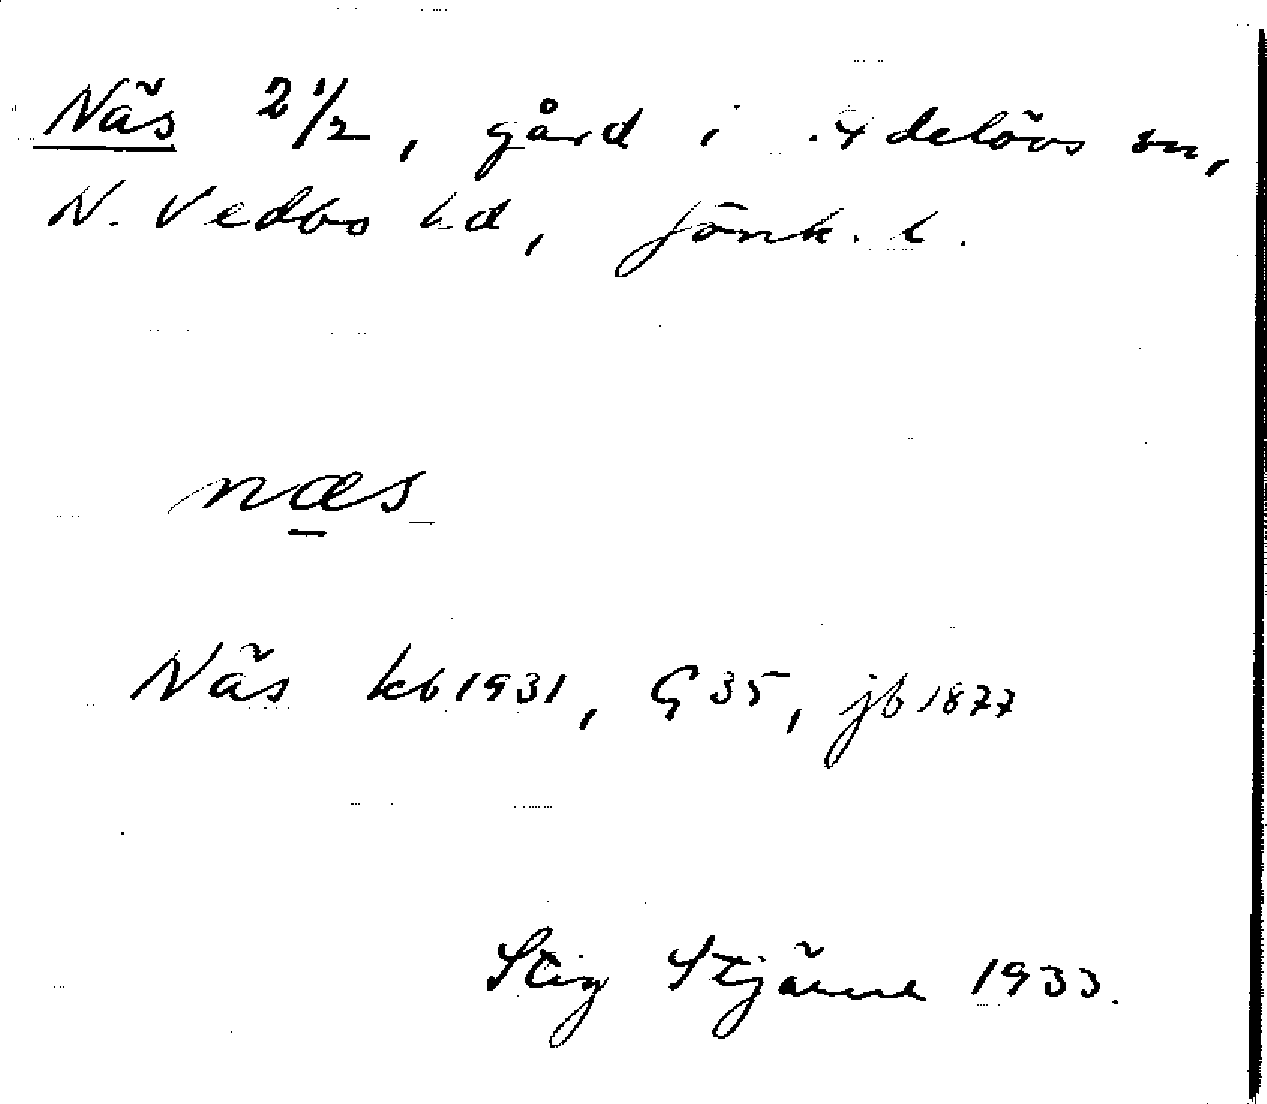 Näs 2 1/2, gård i Adelövs sn,
N. Vedbo hd, Jönk. l.
næs
Näs kb 1931, G 35, jb 1877
Stig Stjärne 1933.